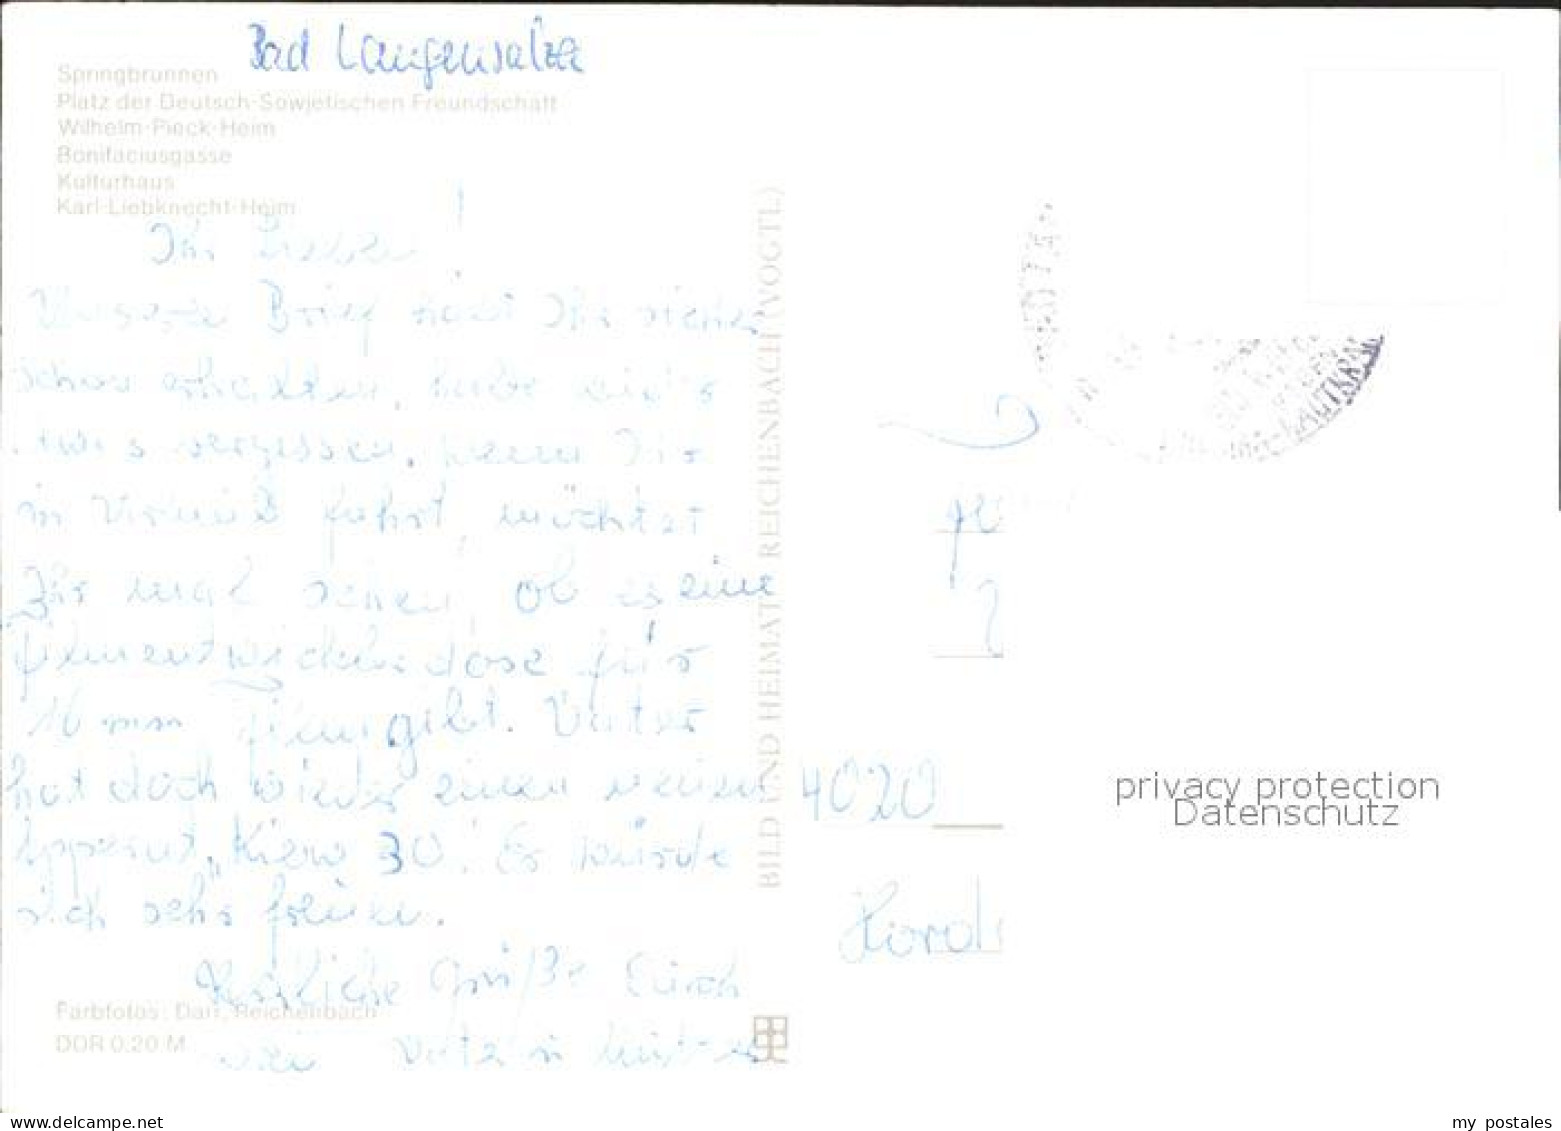 Bad Langensalza
Springbrunnen
Platz der Deutsch-Sowjetischen Freundschaft
Wilhelm-Pieck-Heim
Bonifaciusgasse
Kulturhaus
Karl-Liebknecht-Heim
Ihr Lieben!
Unseren Brief habt Ihr sicher
schon erhalten, habe eins
vergessen. Wenn Ihr
in Urlaub fahrt, möchtet
Ihr mal sehen, ob es eine
Filmentwicklerdose für
16 mm Film gibt. Vater
hat doch wieder einen neuen
Apparat, "Kiew 30". Er würde
sich sehr freuen.
Herzliche Grüße Euch
Vater u. Mutter
Farbfotos: Darr, Reichenbach
DDR 0,20 M
BILD UND HEIMAT REICHENBACH (VOGTL)
4020
privacy protection
Datenschutz
www.delcampe.net
my_postales